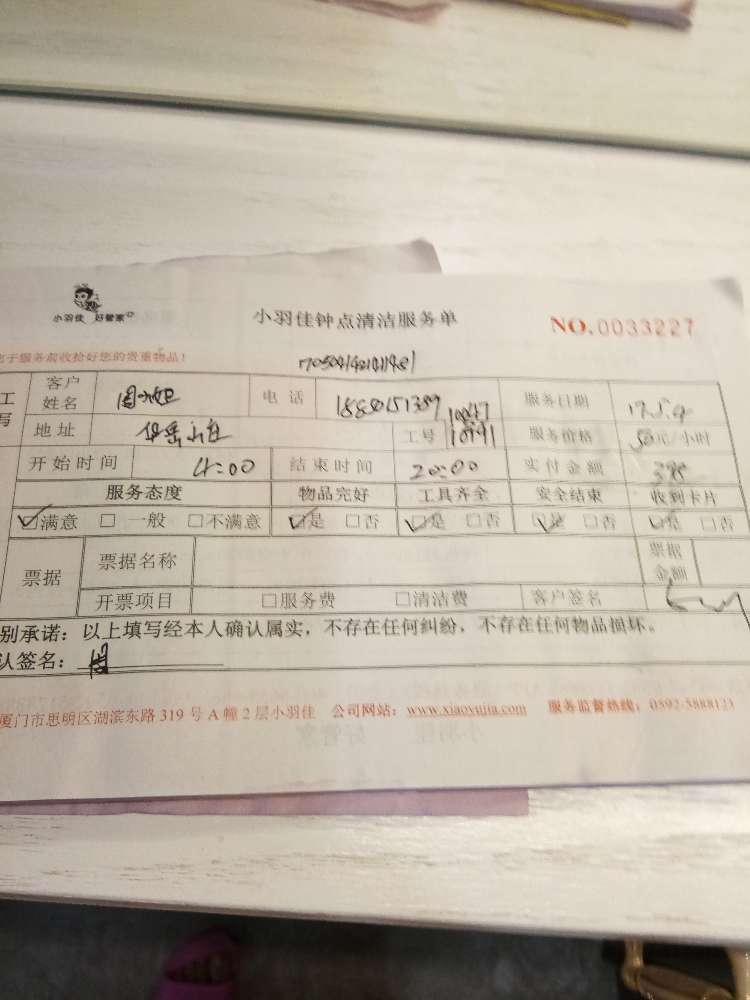 小羽佳 好管家
小羽佳钟点清洁服务单
NO.0033227
于服务前收拾好您的贵重物品!
工 客户姓名 电话 服务日期 17.5.4
写 地址 工号 10991 服务价格 50元/小时
开始时间 14:00 结束时间 20:00 实付金额
服务态度 物品完好 工具齐全 安全结束 收到卡片
☑满意 □一般 □不满意 ☑是 □否 ☑是 □否 ☑是 □否 ☑是 □否
票据 票据名称 票据金额
开票项目 □服务费 □清洁费 客户签名
别承诺:以上填写经本人确认属实,不存在任何纠纷,不存在任何物品损坏。
认签名:
厦门市思明区湖滨东路 319 号 A 幢 2 层小羽佳 公司网站:www.xiaoyujia.com 服务监督热线:0592-5888123